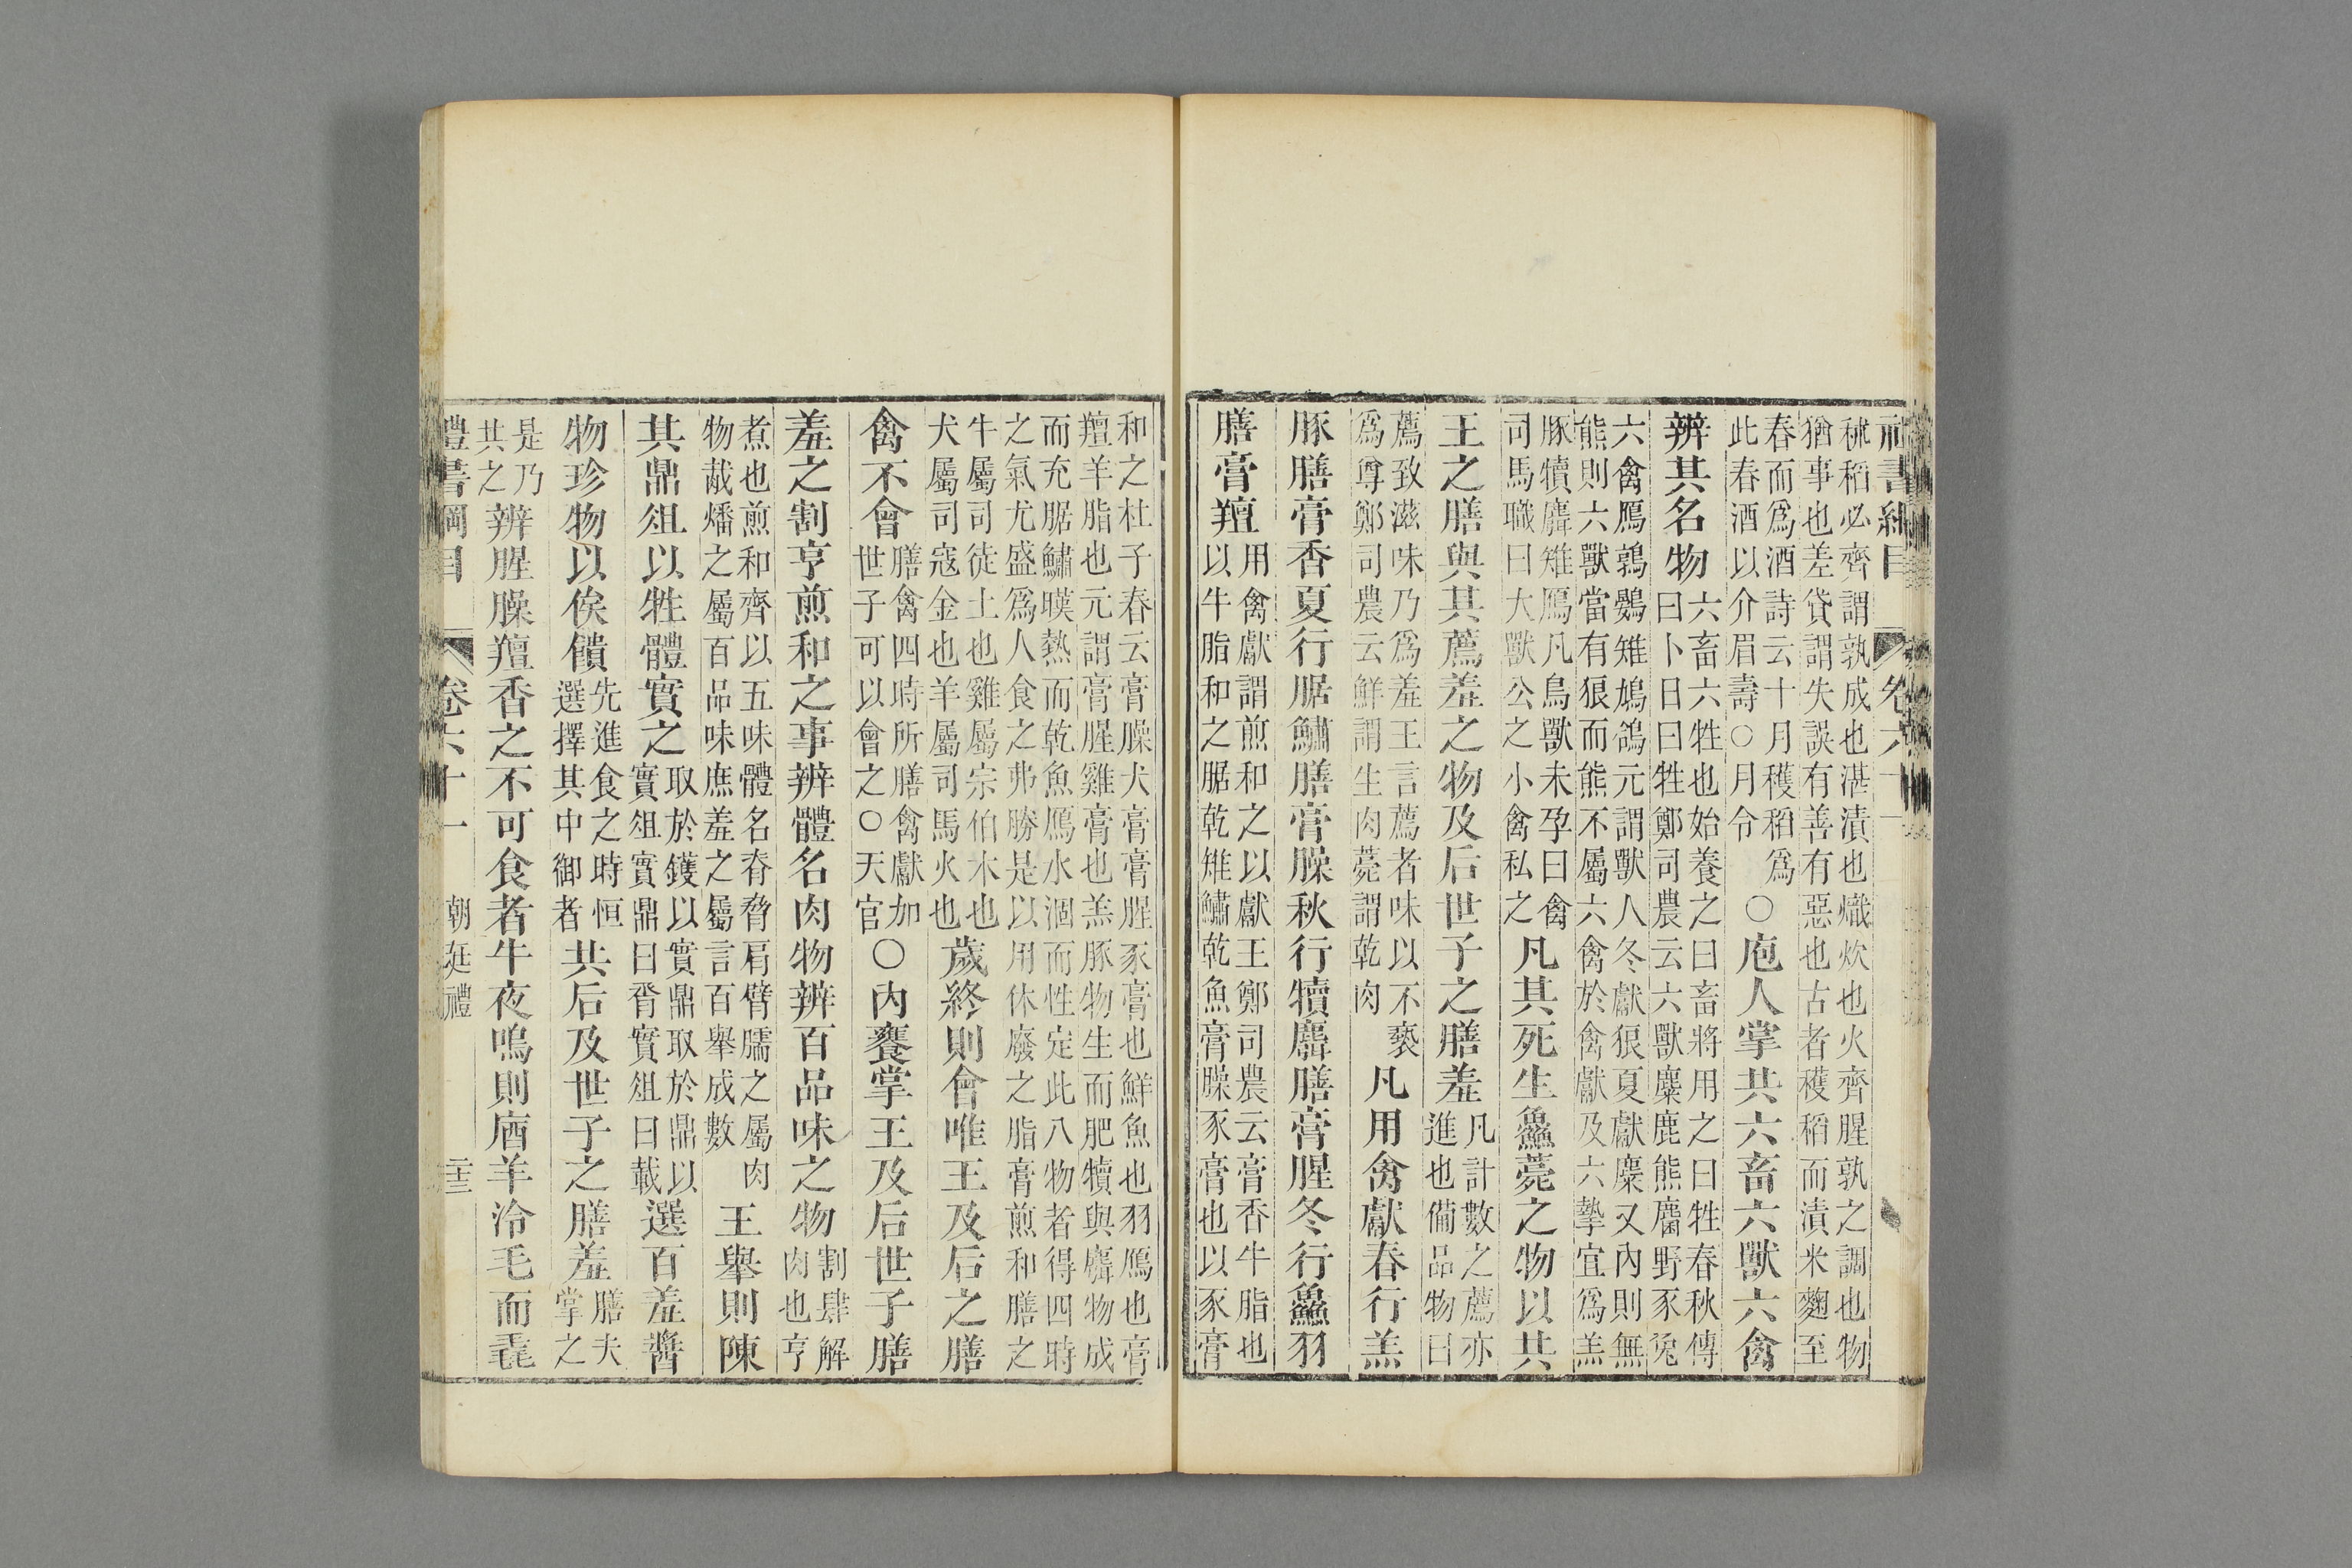 禮書綱目 卷六十一
秫稻必齊謂孰成也湛漬也熾炊也火齊腥孰之調也物
猶事也差貸謂失誤有善有惡也古者穫稻而漬米麴至
春而爲酒詩云十月穫稻爲
此春酒以介眉壽○月令
○庖人掌共六畜六獸六禽
辨其名物
六畜六牲也始養之曰畜將用之曰牲春秋傳
曰卜日曰牲鄭司農云六獸麋鹿熊麕野豕兔
六禽鴈鶉鷃雉鳩鴿元謂獸人冬獻狼夏獻麋又內則無
熊則六獸當有狼而熊不屬六禽於禽獻及六摯宜爲羔
豚犢麛雉鴈凡鳥獸未孕曰禽
司馬職曰大獸公之小禽私之
凡其死生鱻薧之物以共
王之膳與其薦羞之物及后世子之膳羞
凡計數之薦亦
進也備品物曰
薦致滋味乃爲羞王言薦者味以不褻
爲尊鄭司農云鮮謂生肉薧謂乾肉
凡用禽獻春行羔
豚膳膏香夏行腒鱐膳膏臊秋行犢麛膳膏腥冬行鱻羽
膳膏羶
用禽獻謂煎和之以獻王鄭司農云膏香牛脂也
以牛脂和之腒乾雉鱐乾魚膏臊豕膏也以豕膏
和之杜子春云膏臊犬膏膏腥豕膏也鮮魚也羽鴈也膏
羶羊脂也元謂膏腥雞膏也羔豚物生而肥犢與麛物成
而充腒鱐暵熱而乾魚鴈水涸而性定此八物者得四時
之氣尤盛爲人食之弗勝是以用休廢之脂膏煎和膳之
牛屬司徒土也雞屬宗伯木也
犬屬司寇金也羊屬司馬火也
歲終則會唯王及后之膳
禽不會
膳禽四時所膳禽獻加
世子可以會之○天官
○內饔掌王及后世子膳
羞之割亨煎和之事辨體名肉物辨百品味之物
割肆解
肉也亨
煮也煎和齊以五味體名脊脅肩臂臑之屬肉
物胾燔之屬百品味庶羞之屬言百舉成數
王舉則陳
其鼎俎以牲體實之
取於鑊以實鼎取於鼎以
實俎實鼎曰脀實俎曰載
選百羞醬
物珍物以俟饋
先進食之時恒
選擇其中御者
共后及世子之膳羞
膳夫
掌之
是乃
其之
辨腥臊羶香之不可食者牛夜鳴則庮羊泠毛而毳
禮書綱目 卷六十一 朝廷禮 二十三